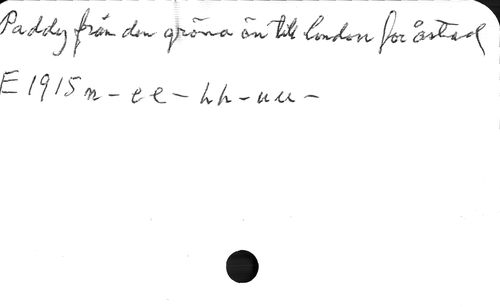 Paddy från den gröna ön till London for åstad
E 1915 n - ee - hh - uu -